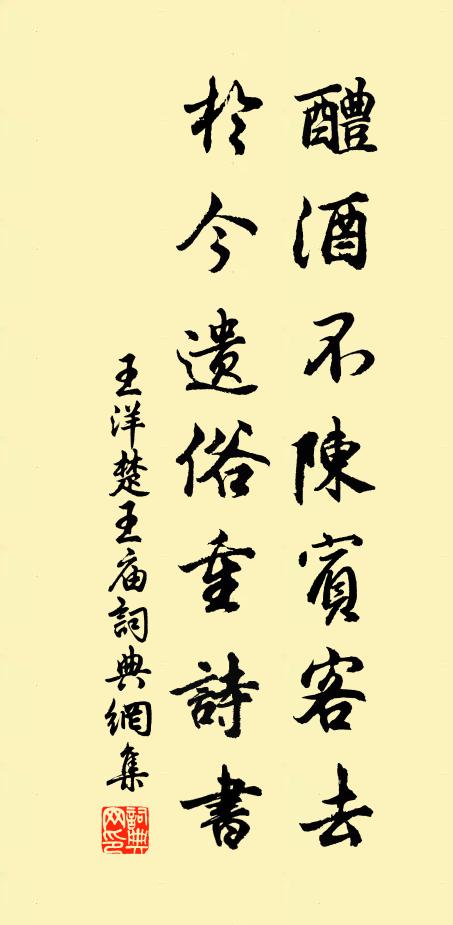 醴酒不陳賓客去
於今遺俗重詩書
王洋楚王庙詞典網集
詞典网印